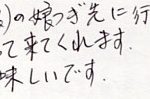 )の娘つぎ先に行
て来てくれます.
味しいです.